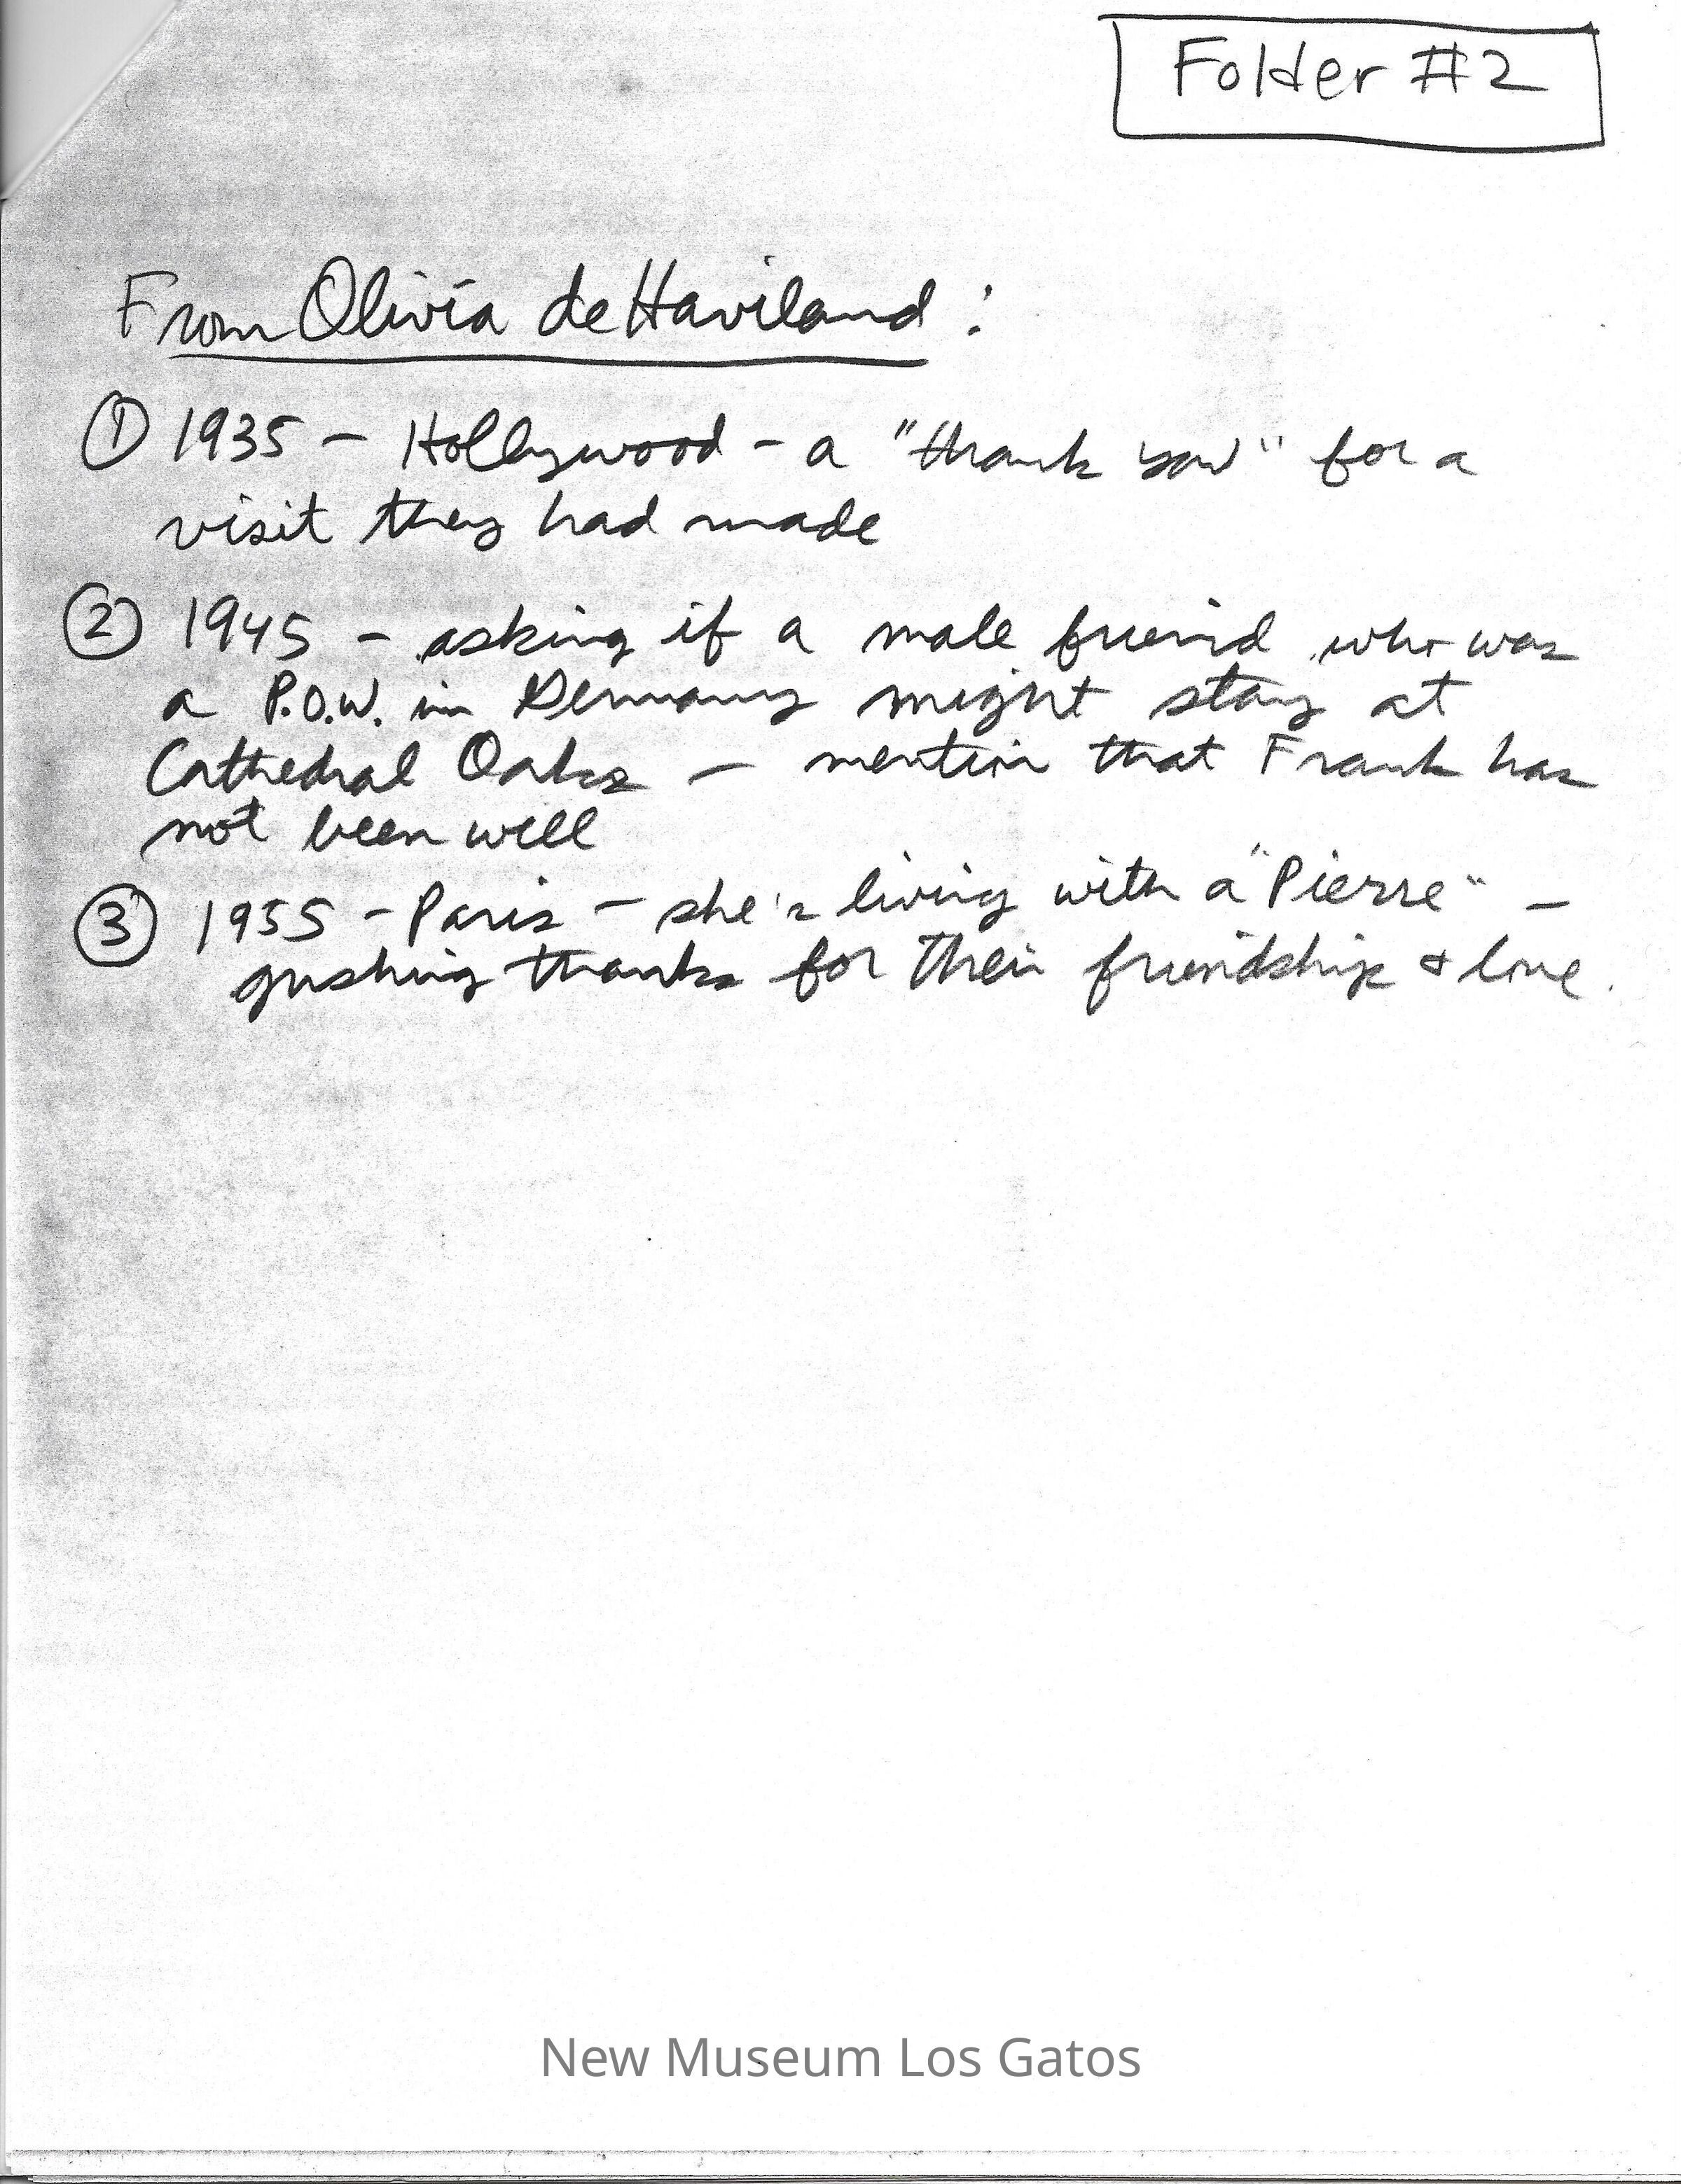 Folder #2
From Olivia de Haviland :
① 1935 – Hollywood – a "thank you" for a
visit they had made
② 1945 – asking if a male friend who was
a P.O.W. in Germany might stay at
Cathedral Oaks – mention that Frank has
not been well
③ 1955 – Paris – she's living with a "Pierre" –
gushing thanks for their friendship & love.
New Museum Los Gatos